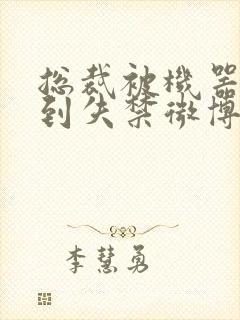 总裁被機器
到失禁微博
李慧勇